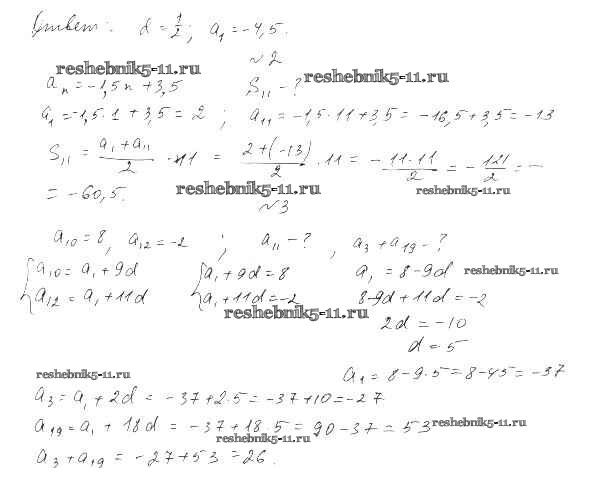 Ответ: d = 1/2; a₁ = -4,5.
№2
reshebnik5-11.ru
reshebnik5-11.ru
aₙ = -1,5n + 3,5 S₁₁ - ?
a₁ = -1,5·1 + 3,5 = 2 ; a₁₁ = -1,5·11 + 3,5 = -16,5 + 3,5 = -13
S₁₁ = (a₁ + a₁₁)/2 · 11 = (2 + (-13))/2 · 11 = - (11·11)/2 = - 121/2 = -
= -60,5.
reshebnik5-11.ru
reshebnik5-11.ru
№3
a₁₀ = 8, a₁₂ = -2 ; a₁₁ - ? , a₃ + a₁₉ - ?
{a₁₀ = a₁ + 9d {a₁ + 9d = 8 a₁ = 8 - 9d reshebnik5-11.ru
{a₁₂ = a₁ + 11d {a₁ + 11d = -2 8 - 9d + 11d = -2
reshebnik5-11.ru
2d = -10
d = 5
reshebnik5-11.ru a₁ = 8 - 9·5 = 8 - 45 = -37
a₃ = a₁ + 2d = -37 + 2·5 = -37 + 10 = -27
a₁₉ = a₁ + 18d = -37 + 18·5 = 90 - 37 = 53 reshebnik5-11.ru
reshebnik5-11.ru
a₃ + a₁₉ = -27 + 53 = 26.